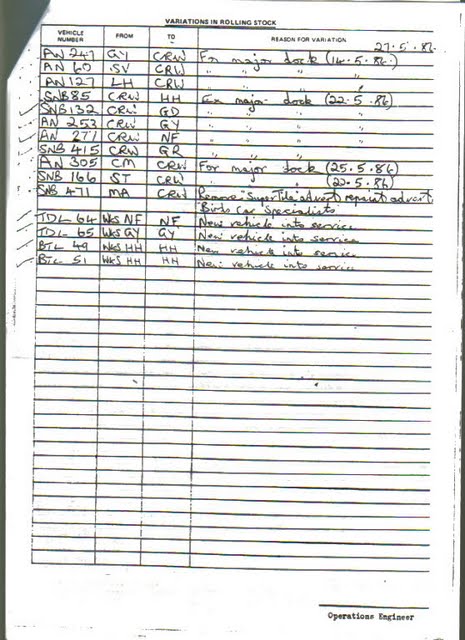 VARIATIONS IN ROLLING STOCK
VEHICLE NUMBER FROM TO REASON FOR VARIATION
27.5.86
AN 247 GY CRW For major dock (14.5.86)
AN 60 SV CRW " " "
AN 127 LH CRW " " "
SNB 85 CRW HH Ex major dock (22.5.86)
SNB 132 CRW GD " " "
AN 253 CRW GY " " "
AN 277 CRW NF " " "
SNB 415 CRW GR " " "
AN 305 CM CRW For major dock (25.5.86)
SNB 166 ST CRW " " " (22.5.86)
SNB 471 MA CRW Remove Super Tile advert repaint advert
Birds Car Specialists
TDL 64 WKS NF NF New vehicle into service
TDL 65 WKS GY GY New vehicle into service
BTL 49 WKS HH HH New vehicle into service
BTL 51 WKS HH HH New vehicle into service
Operations Engineer